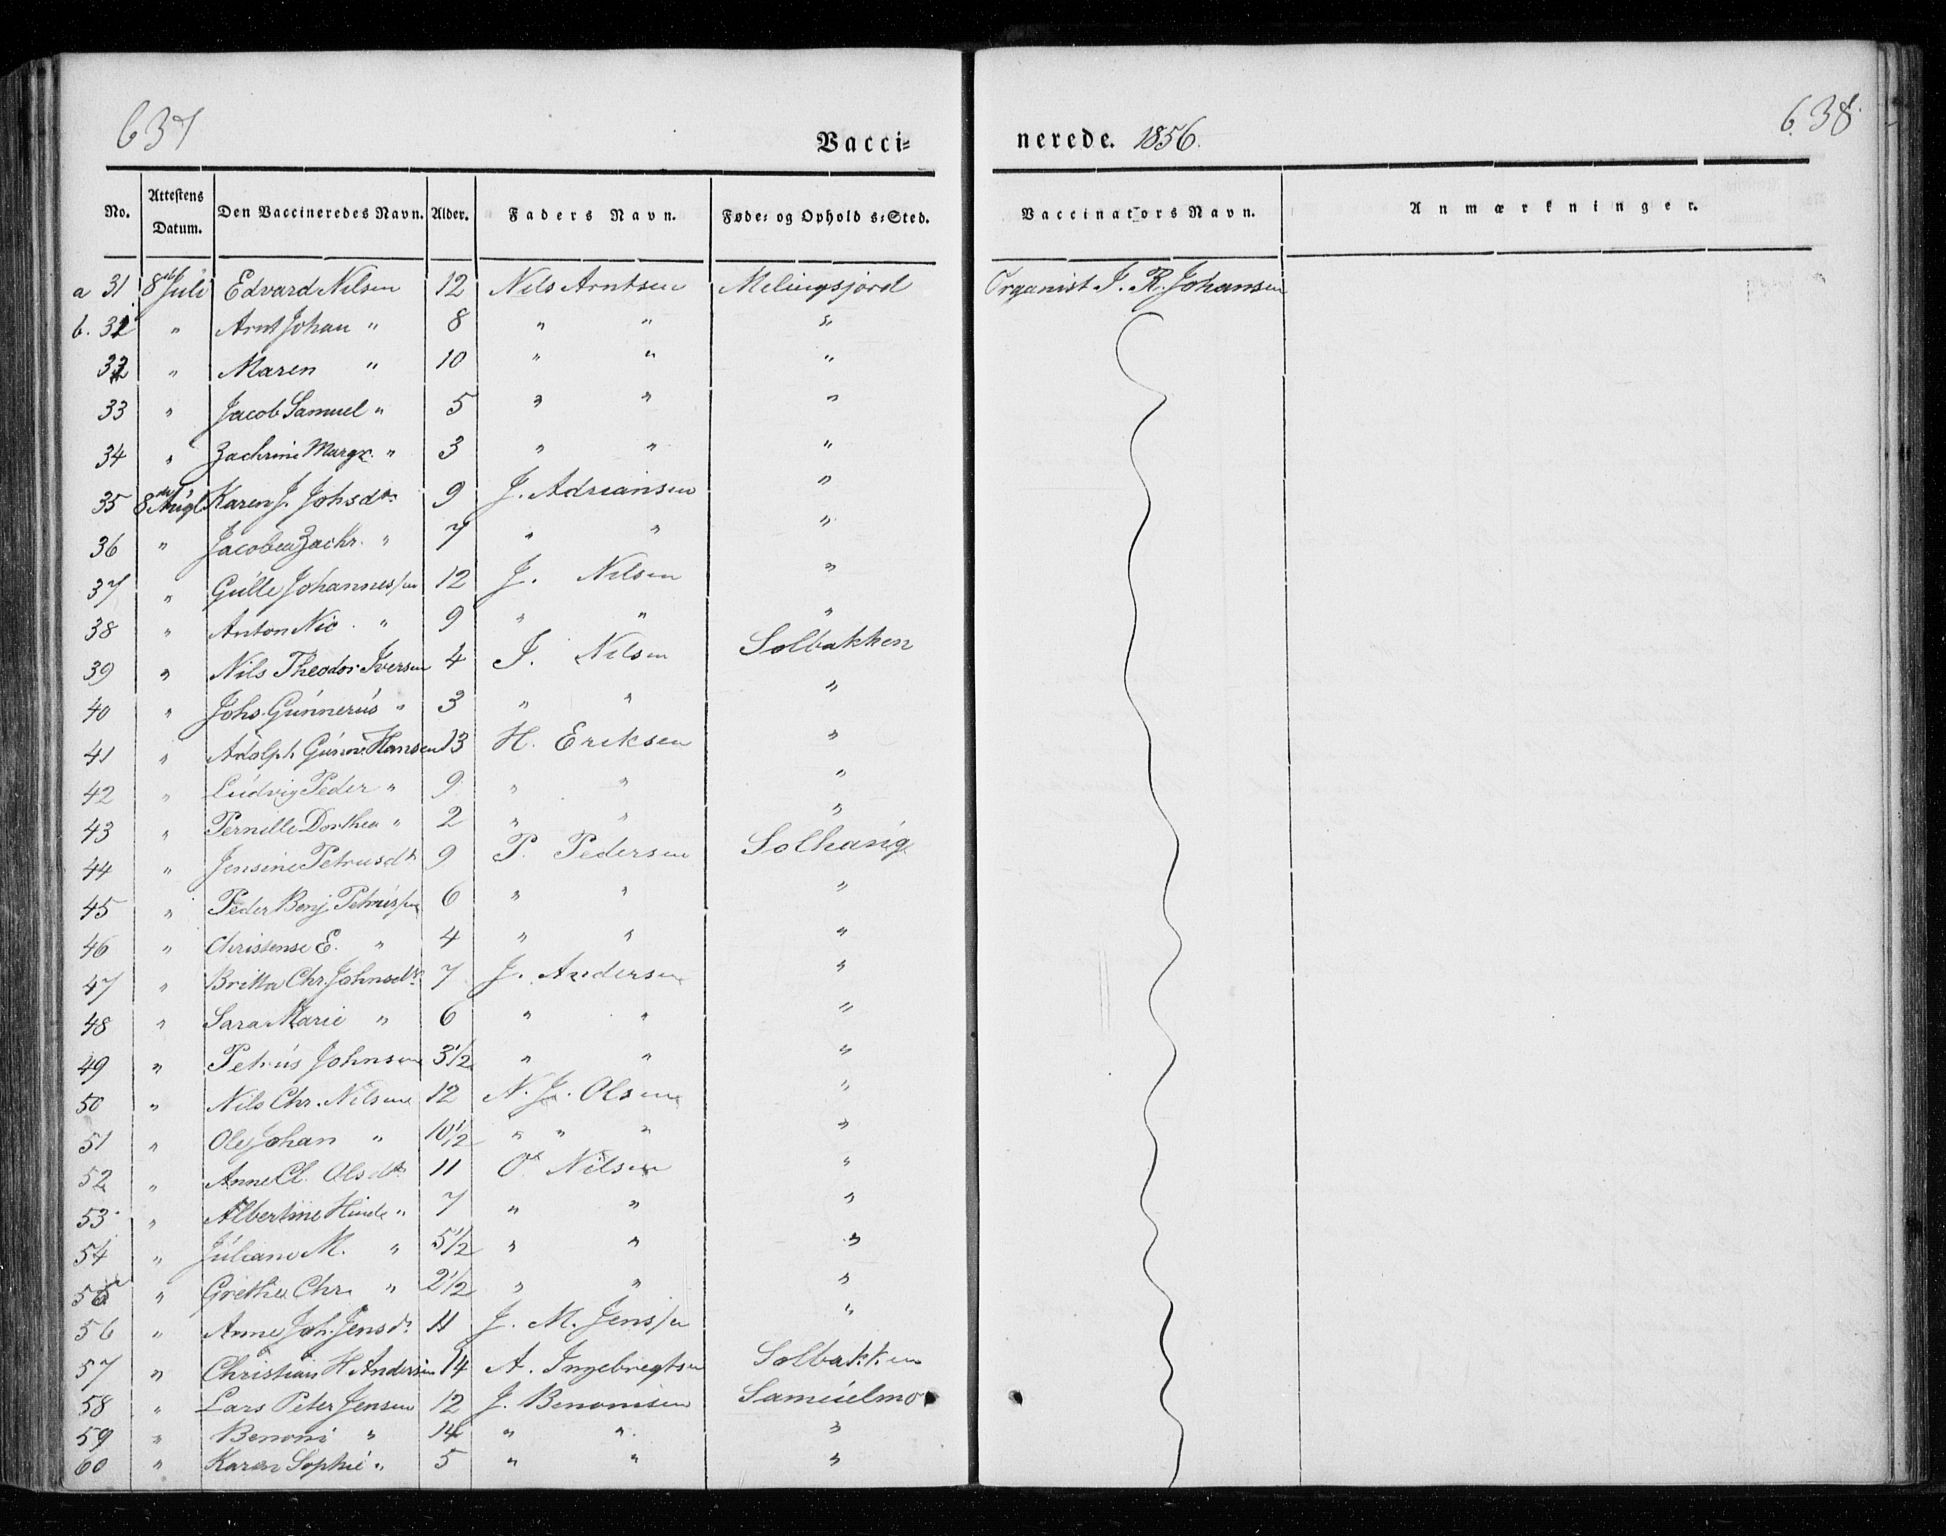 637
638
Vacci= nerede. 1856.
No. Attestens Datum. Den Vaccineredes Navn. Alder. Faders Navn. Føde= og Ophold s=Sted. Vaccinators Navn. Anmærkninger.
a 31 8de Juli Edvard Nilsen 12 Nils Arntsen Melingsjord Organist J. R. Johansen
b. 31 " Arnt Johan " 8 " " "
32 " Maren " 10 " " "
33 " Jacob Samuel " 5 " " "
34 " Zachrine Margr. " 3 " " "
35 8de Augt Karen J. Johsdtr 9 J. Adriansen "
36 " Jacobea Zachr. " 7 " " "
37 " Gulle Johannessen 12 J. Nilsen "
38 " Anton Nic. " 9 " " "
39 " Nils Theodor Iversen 4 I. Nilsen Solbakken
40 " Johs. Gunnerus " 3 " " "
41 " Adolph Gunn. Hansen 13 H. Eriksen "
42 " Ludvig Peder " 9 " " "
43 " Pernille Dorthea " 2 " " "
44 " Jensine Petrusdtr 9 P. Pedersen Solhaug
45 " Peder Benj Petrussen 6 " " "
46 " Christense E. " 4 " " "
47 " Britta Chr. Johnsdtr 7 J. Andersen "
48 " Sara Marie " 6 " " "
49 " Petrus Johnsen 3 1/2 " " "
50 " Nils Chr. Nilsen 12 N. J. Olsen "
51 " Ole Johan " 10 1/2 " " " "
52 " Anne Cl. Olsdtr 11 O. Nilsen "
53 " Albertine " 7 " " "
54 " Juliane M. " 5 1/2 " " "
55 " Grethe Chr. " 2 1/2 " " "
56 " Anne Joh. Jensdr 11 J. M. Jenssen "
57 " Christian H Andersen 14 A. Ingebregtsen Solbakken
58 " Lars Peter Jensen 12 J. Benonisen Samuelmo
59 " Benoni " 14 " " "
60 " Karen Sophie " 5 " " "